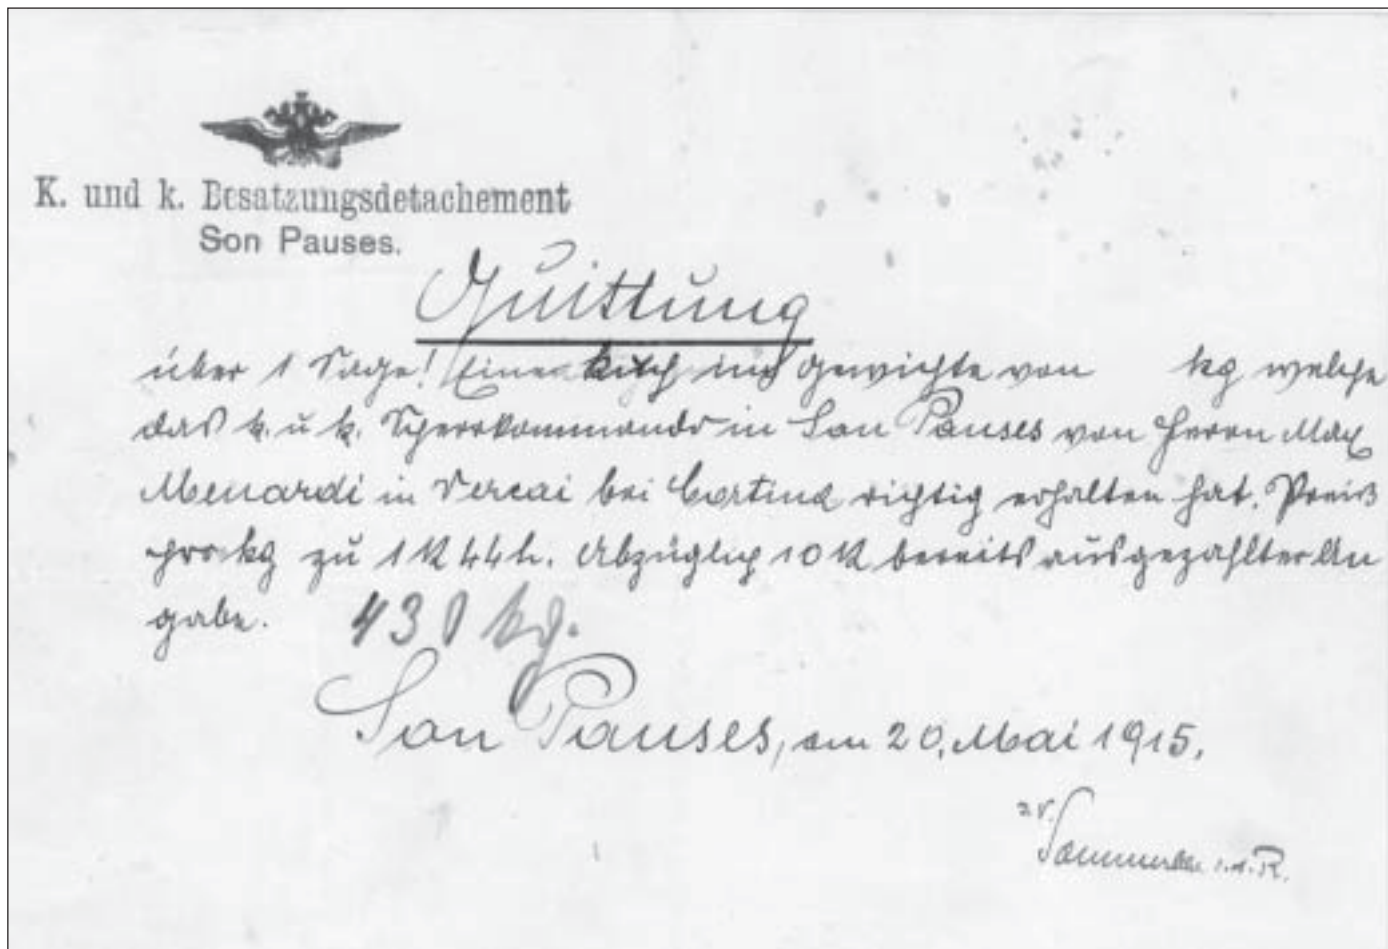 K. und k. Besatzungsdetachement
Son Pauses.
Quittung
über 1 Sage! Eine Kuh im Gewichte von kg welche
das k. u. k. Sperrkommando in Son Pauses von Herrn Max
Menardi in Vercai bei Cortina richtig erhalten hat. Preis
pro kg zu 1 K 44 h. Abzüglich 10 K bereits ausgezahlter An
gabe. 430 kg.
Son Pauses, am 20. Mai 1915.
i. d. R.